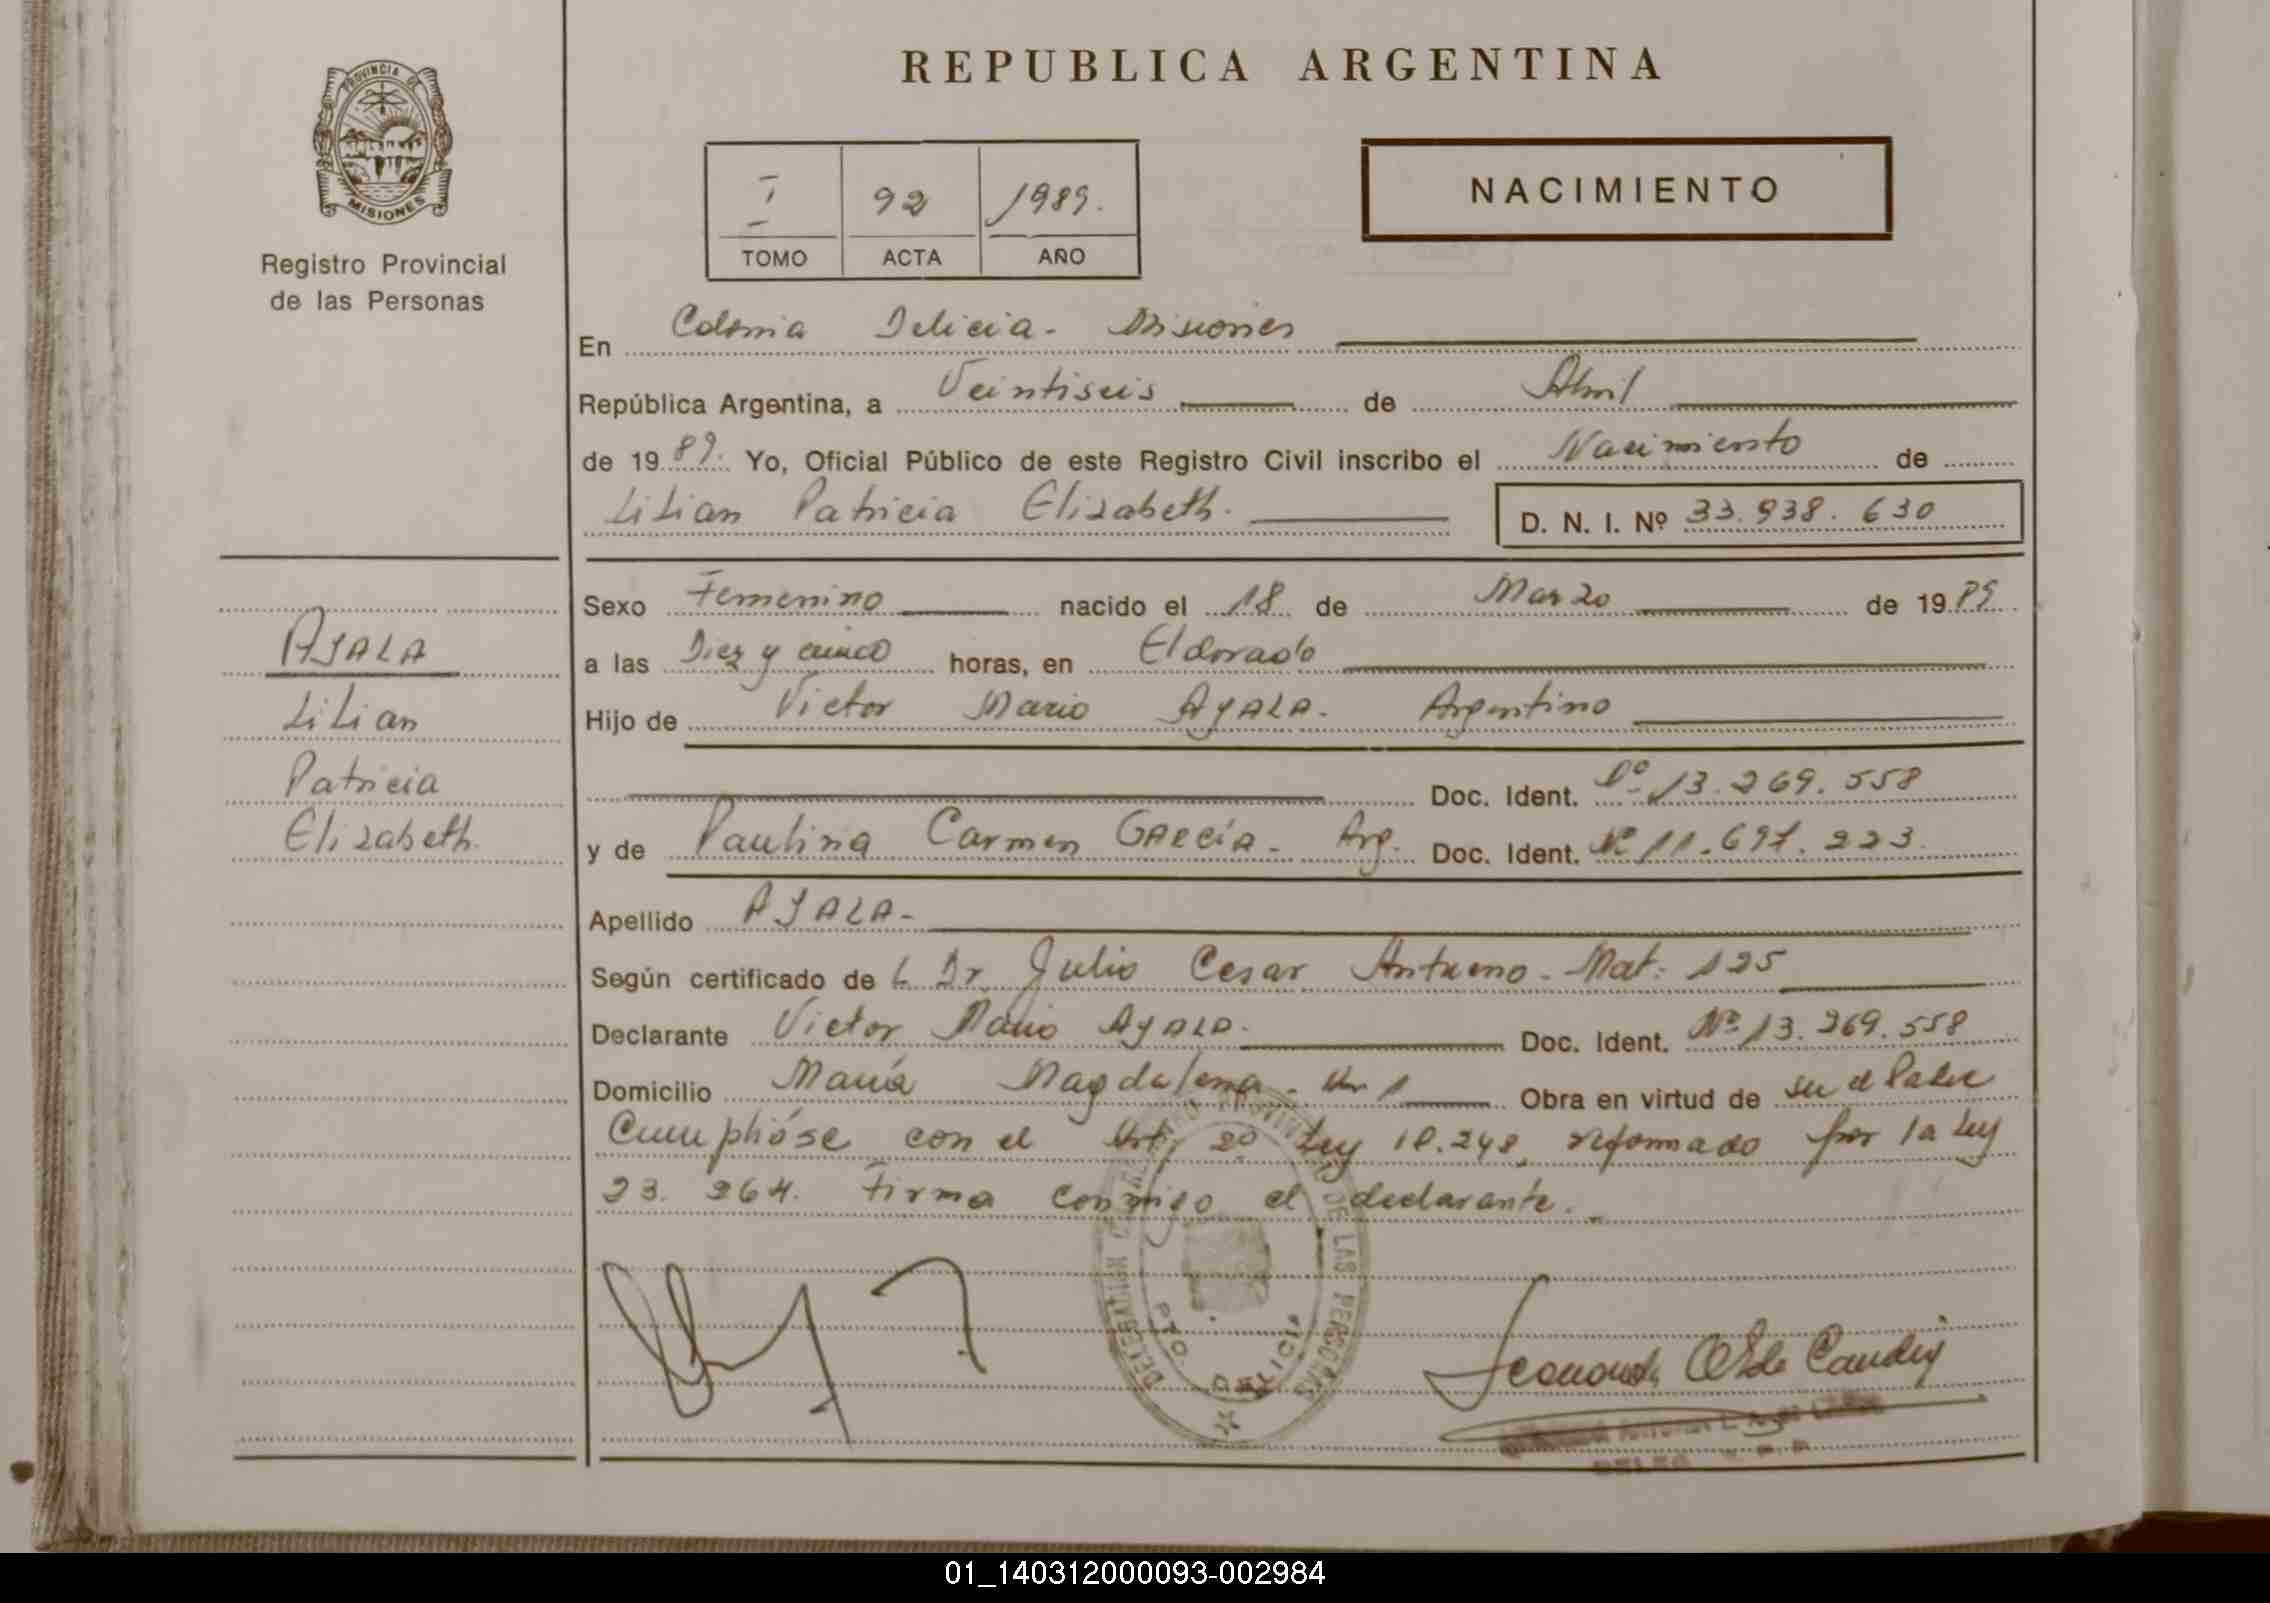 REPUBLICA ARGENTINA
PROVINCIA DE
MISIONES
Registro Provincial
de las Personas
I 92 1989.
TOMO ACTA AÑO
NACIMIENTO
En Colonia Delicia - Misiones
República Argentina, a Veintiseis de Abril
de 1989. Yo, Oficial Público de este Registro Civil inscribo el Nacimiento de
Lilian Patricia Elizabeth. D. N. I. Nº 33.938.630
Sexo Femenino nacido el 18 de Marzo de 1989
a las Diez y cinco horas, en Eldorado
Hijo de Victor Mario AyALA. Argentino
Doc. Ident. Nº 13.269.558
y de Paulina Carmen GARCíA - Arg. Doc. Ident. Nº 11.697.223.
Apellido AYALA -
Según certificado de L Dr. Julio Cesar - Mat: 125
Declarante Victor Mario AyALA. Doc. Ident. Nº 13.269.558
Domicilio María Magdalena - Km 1 Obra en virtud de ser el Padre
Cumplióse con el Art. 2º Ley 18.248, reformado por la Ley
23.264. Firma conmigo el declarante.
AYALA
Lilian
Patricia
Elizabeth.
DE LAS PERSONAS
PTO. DELICIA
01_140312000093-002984